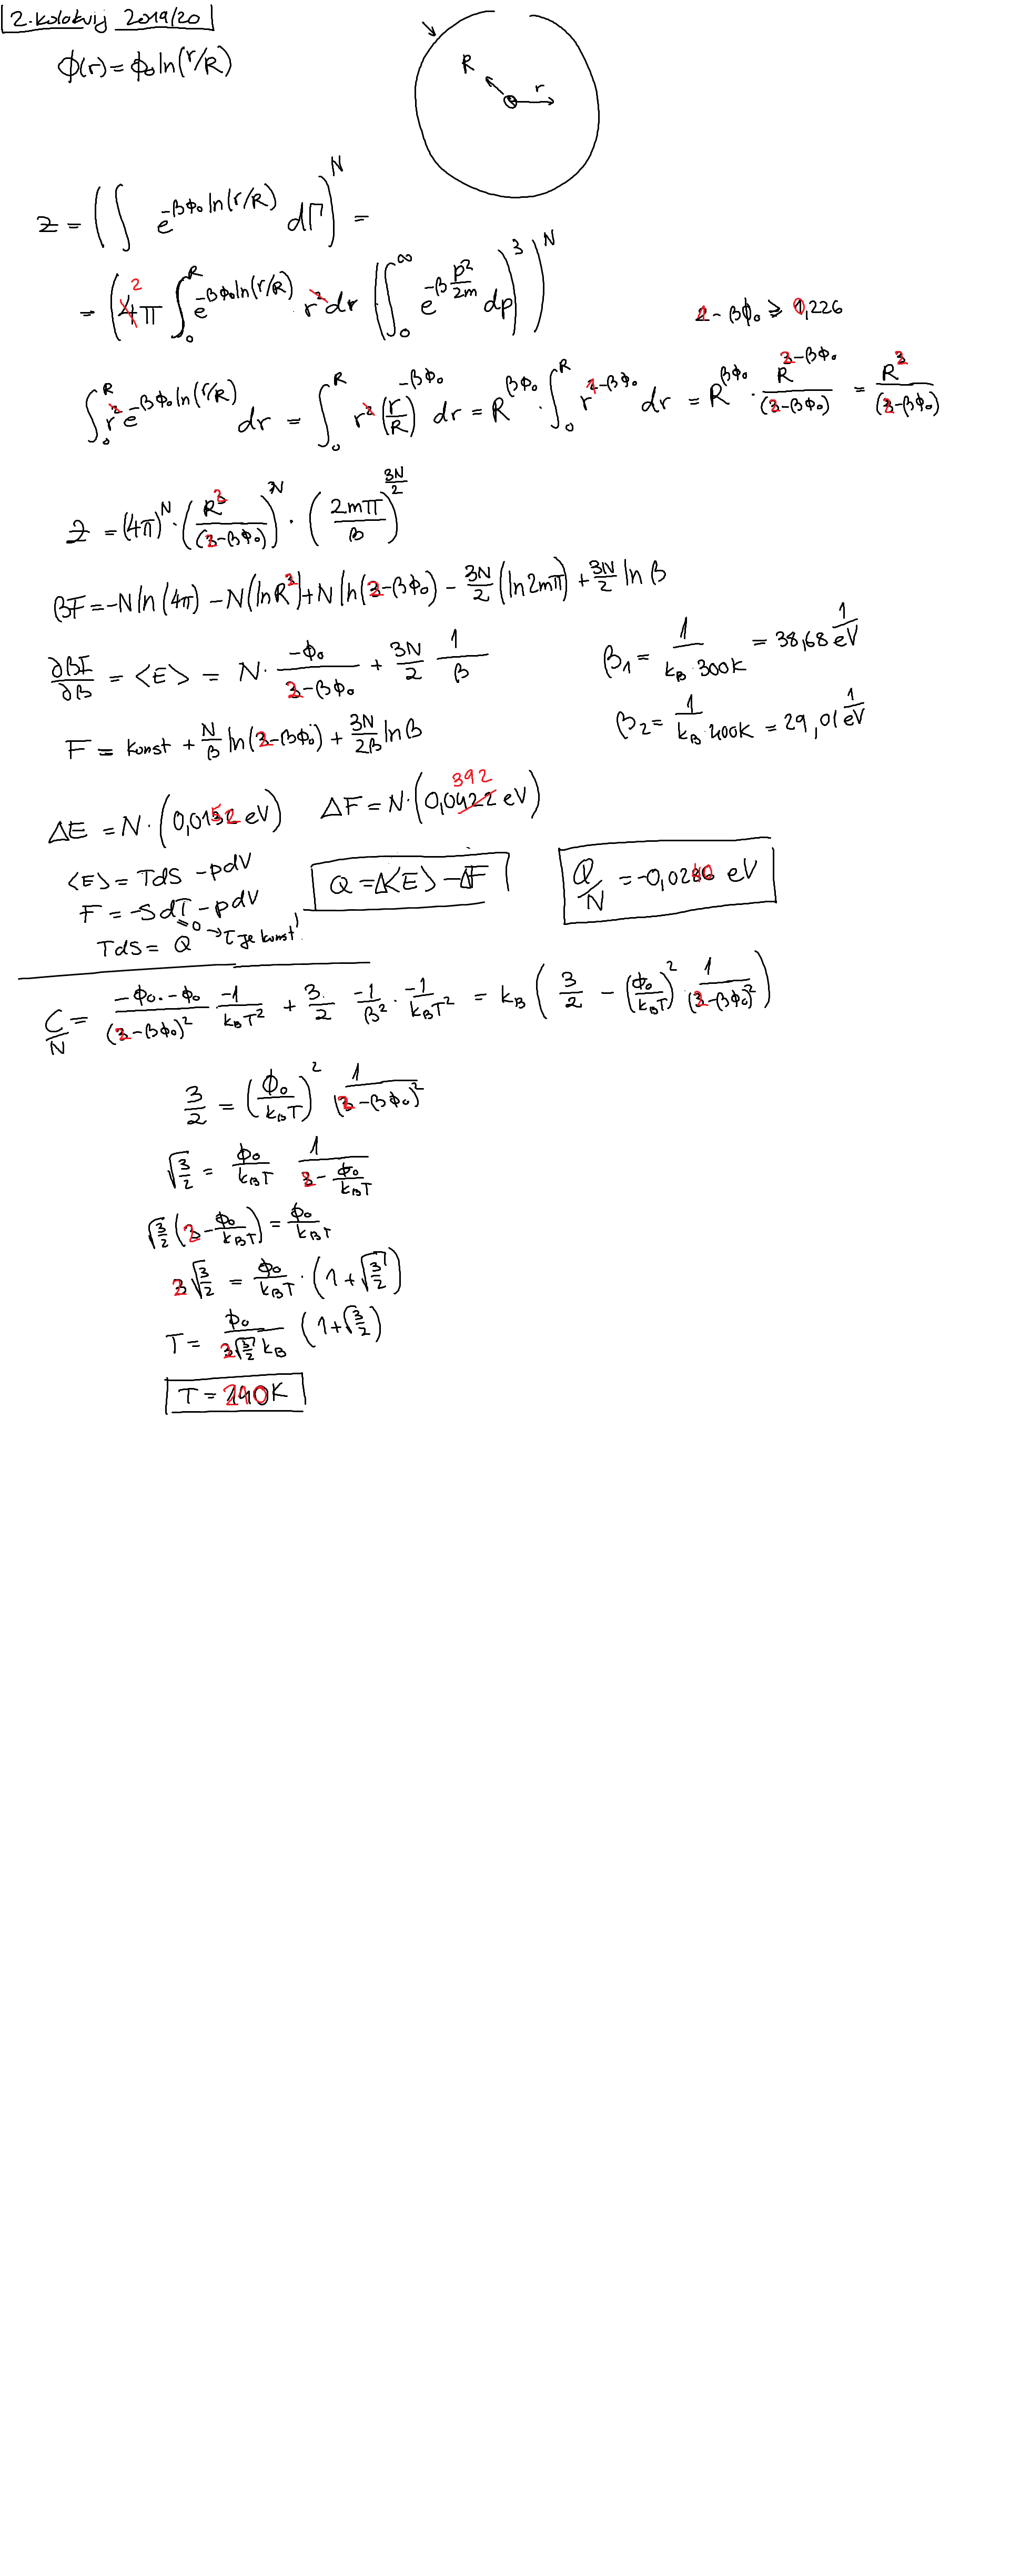 2. kolokvij 2019/20
ϕ(r) = ϕ₀ ln(r/R)
R
r
Z = (∫ e^{-βϕ₀ ln(r/R)} dΓ)^N =
= (2π ∫₀^R e^{-βϕ₀ ln(r/R)} r dr (∫₀^∞ e^{-β p²/2m} dp)³)^N
2 - βϕ₀ ≥ 0,226
∫₀^R r e^{-βϕ₀ ln(r/R)} dr = ∫₀^R r (r/R)^{-βϕ₀} dr = R^{βϕ₀} · ∫₀^R r^{1-βϕ₀} dr = R^{βϕ₀} · R^{2-βϕ₀}/(2-βϕ₀) = R²/(2-βϕ₀)
Z = (4π)^N · (R²/(2-βϕ₀))^N · (2mπ/β)^{3N/2}
βF = -N ln(4π) - N(ln R²) + N ln(2-βϕ₀) - 3N/2 (ln 2mπ) + 3N/2 ln β
∂βF/∂β = <E> = N · -ϕ₀/(2-βϕ₀) + 3N/2 1/β
β₁ = 1/(k_B · 300K) = 38,68 1/eV
F = konst + N/β ln(2-βϕ₀) + 3N/2β ln β
β₂ = 1/(k_B · 400K) = 29,01 1/eV
ΔE = N · (0,0152 eV) ΔF = N · (0,0392 eV)
<E> = TdS - pdV
F = -SdT - pdV
=0 → T je konst.
TdS = Q
Q = Δ<E> - ΔF
Q/N = -0,0240 eV
C/N = -ϕ₀·-ϕ₀/(2-βϕ₀)² -1/k_BT² + 3/2 -1/β² · -1/k_BT² = k_B (3/2 - (ϕ₀/k_BT)² · 1/(2-βϕ₀)²)
3/2 = (ϕ₀/k_BT)² 1/(2-βϕ₀)²
√3/2 = ϕ₀/k_BT 1/(2 - ϕ₀/k_BT)
√3/2 (2 - ϕ₀/k_BT) = ϕ₀/k_BT
2√3/2 = ϕ₀/k_BT · (1+√3/2)
T = ϕ₀/(2√3/2 k_B) (1+√3/2)
T = 210K